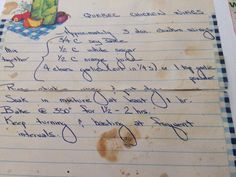 QUEBEC CHICKEN WINGS
Approximately 3 doz. chicken wings
3/4 C soy sauce
Mix 1/2 C white sugar
together 1/2 C orange juice
4 cloves garlic (cut in 1/4's) or 1 tsp garlic
powder
Soak in mixture at least 1 hr.
Bake @ 350° for 1 1/2 - 2 hrs.
Keep turning & basting at frequent
intervals.